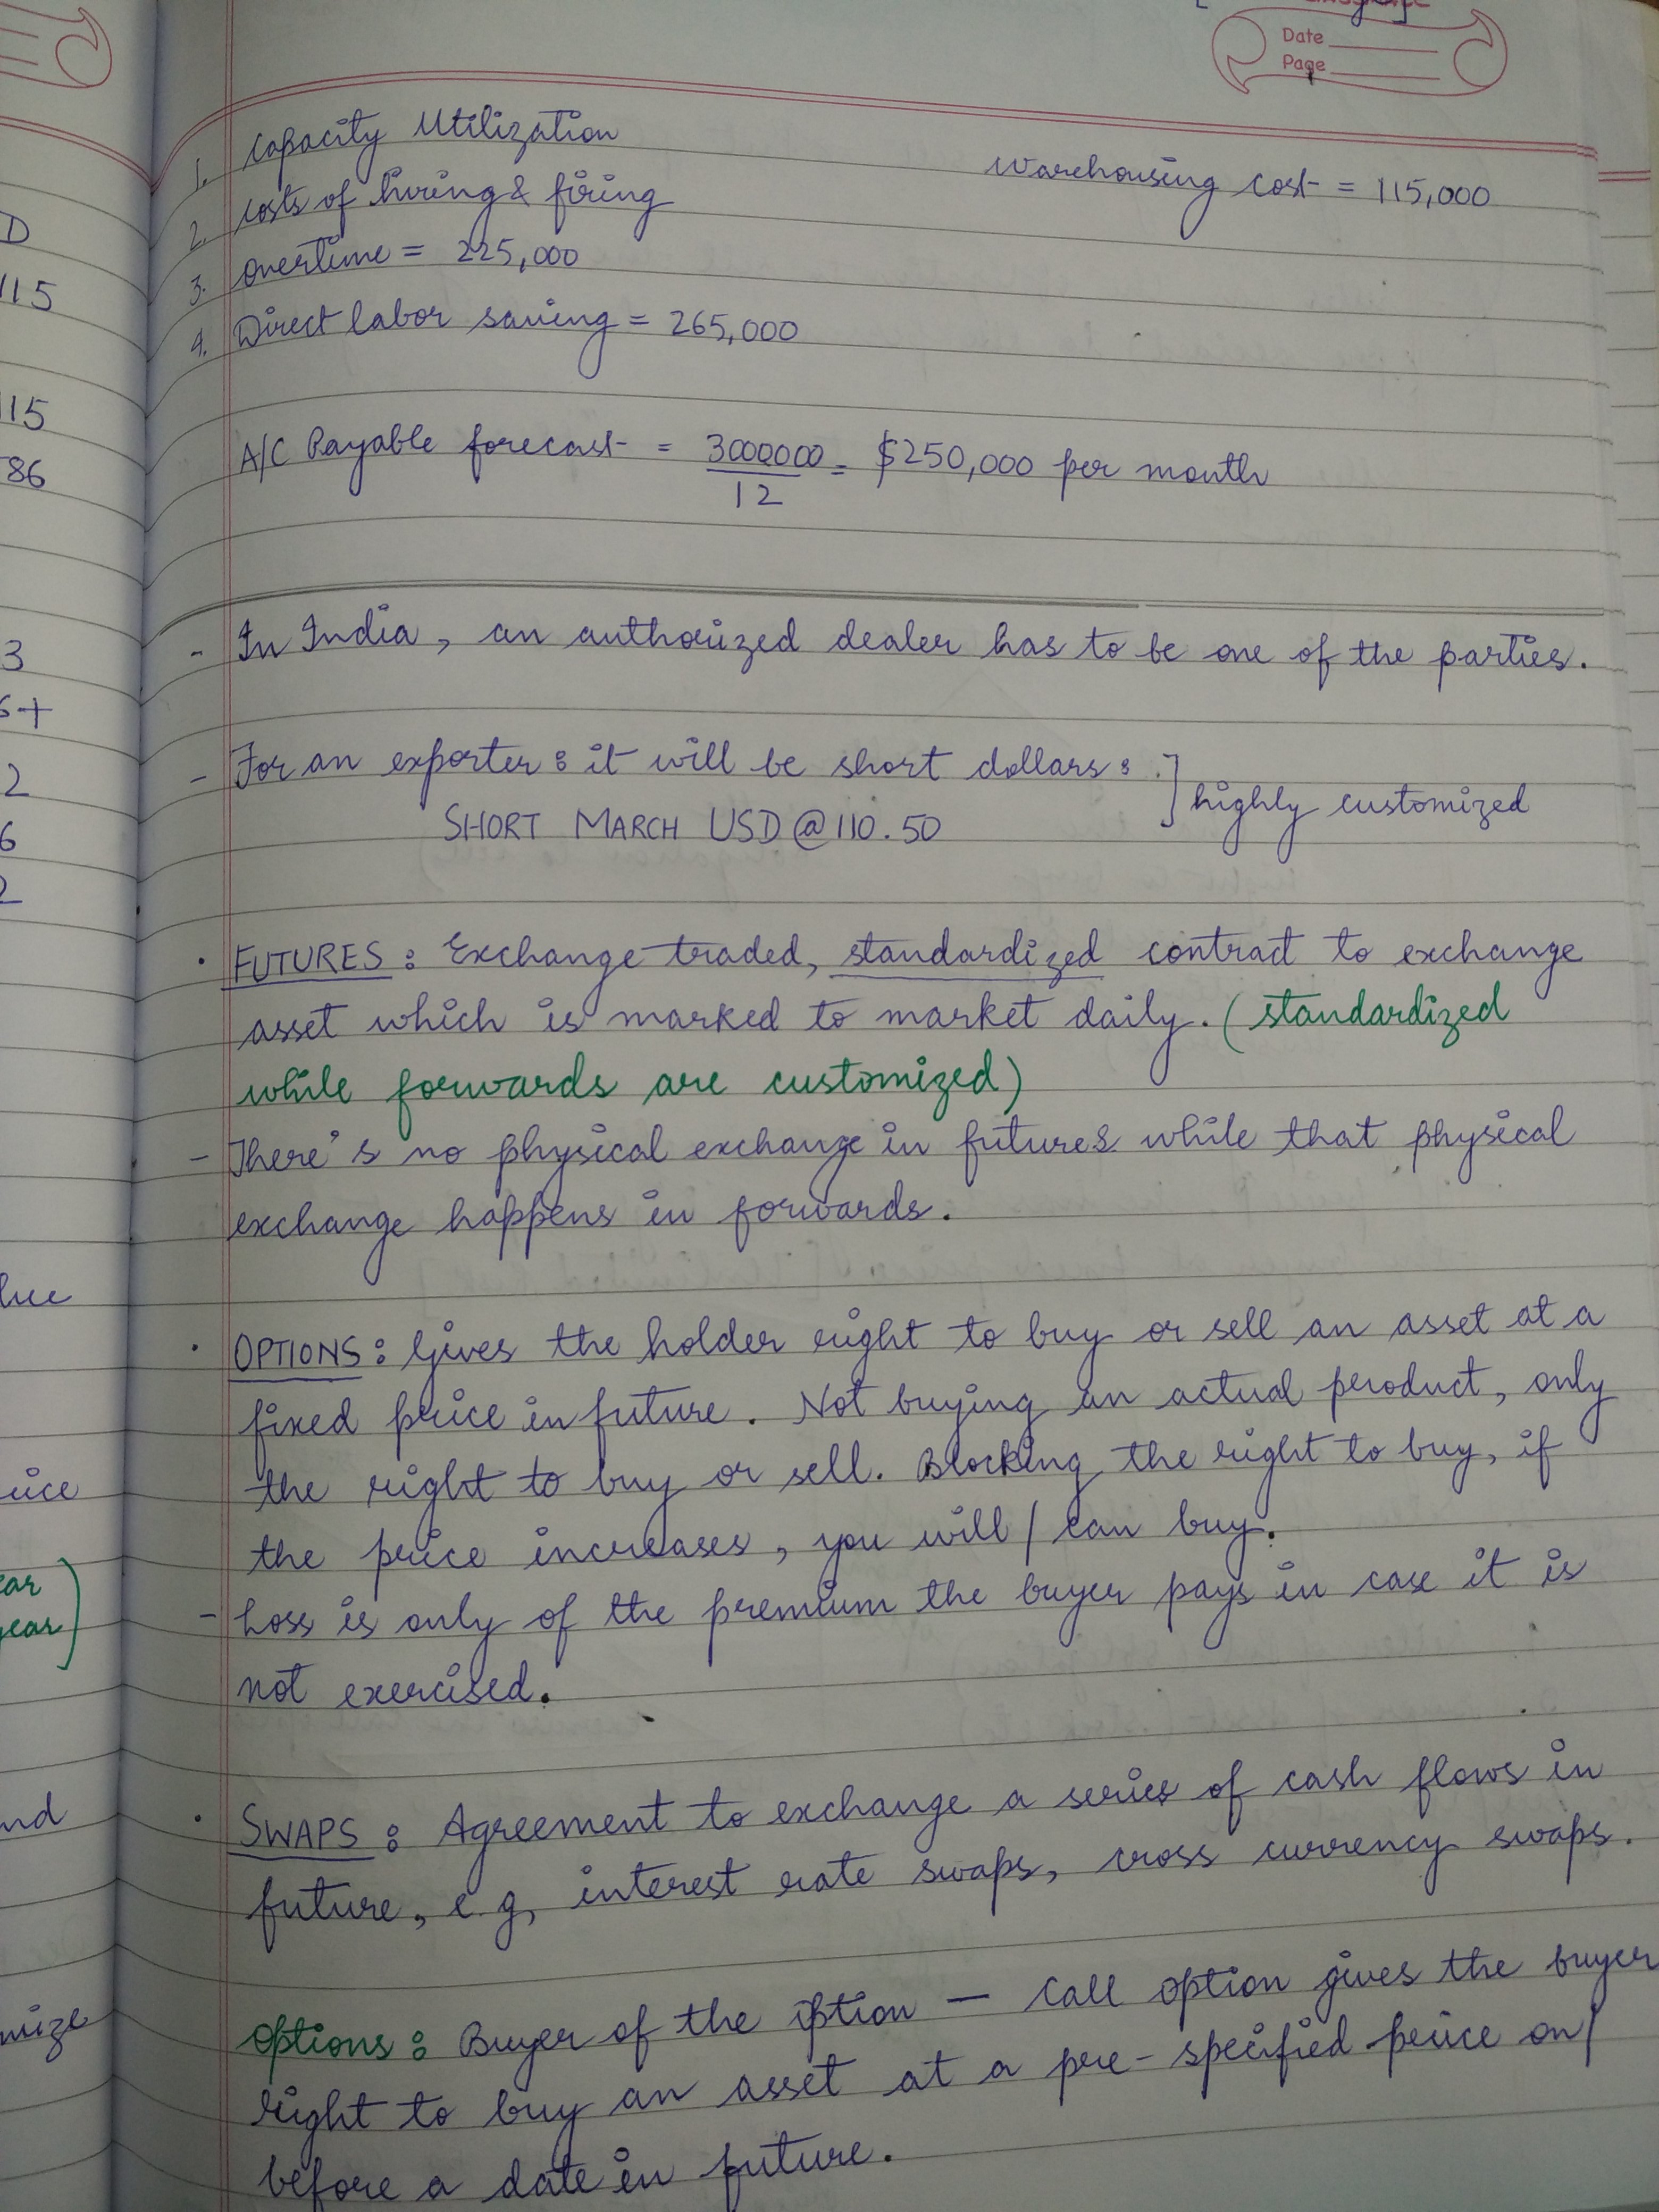 Date
Page
1. Capacity Utilization
Warehousing cost = 115,000
2. Costs of hiring & firing
3. Overtime = 225,000
4. Direct labor saving = 265,000
A/C Payable forecast = 3000000 / 12 = $250,000 per month
- In India, an authorized dealer has to be one of the parties.
- For an exporter : it will be short dollars : ] highly customized
SHORT MARCH USD @ 110.50
· FUTURES : Exchange traded, standardized contract to exchange
asset which is marked to market daily. (standardized
while forwards are customized)
- There's no physical exchange in futures while that physical
exchange happens in forwards.
· OPTIONS : Gives the holder right to buy or sell an asset at a
fixed price in future. Not buying an actual product, only
the right to buy or sell. Blocking the right to buy, if
the price increases, you will / can buy.
- Loss is only of the premium the buyer pays in case it is
not exercised.
· SWAPS : Agreement to exchange a series of cash flows in
future, e.g, interest rate swaps, cross currency swaps.
Options : Buyer of the option — Call option gives the buyer
right to buy an asset at a pre-specified price on/
before a date in future.
D
115
115
86
3
6+
2
6
2
lue
uice
ear
year)
nd
mize